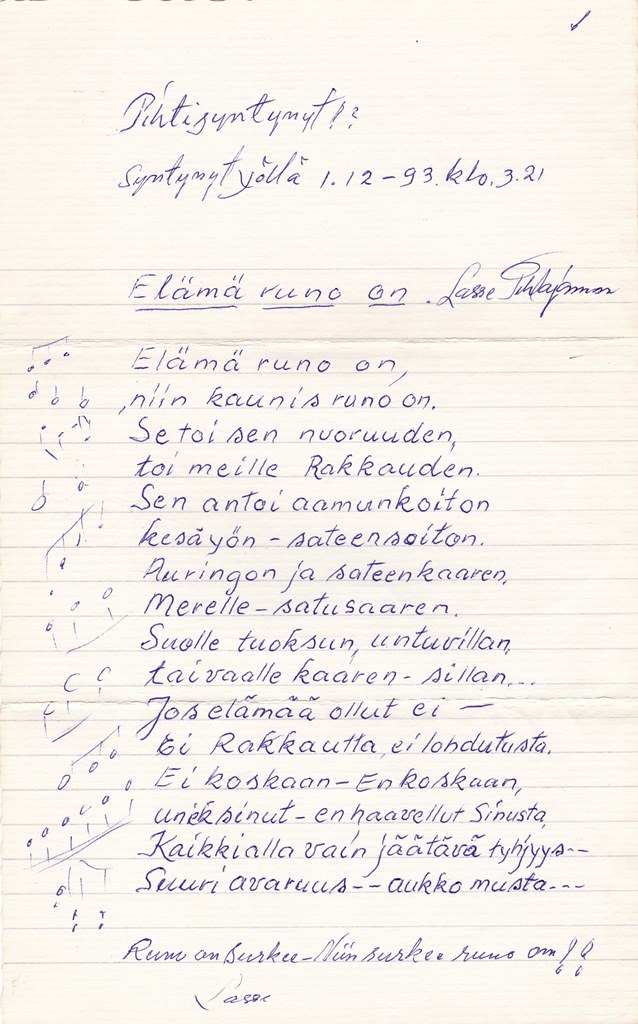 Pihtisyntynyt!?
Syntynyt yöllä 1.12-93. klo. 3.21
Elämä runo on. Lasse Pihlajamaa
Elämä runo on,
niin kaunis runo on.
Se toi sen nuoruuden,
toi meille Rakkauden.
Sen antoi aamunkoiton
kesäyön - sateensoiton.
Auringon ja sateenkaaren,
Merelle - satusaaren.
Suolle tuoksun, untuvillan,
taivaalle kaaren - sillan...
Jos elämää ollut ei —
Ei Rakkautta, ei lohdutusta.
Ei koskaan - En koskaan,
uneksinut - en haavellut Sinusta,
Kaikkialla vain jäätävä tyhjyys--
Suuri avaruus -- aukko musta---
Runo on surkee - Niin surkee runo on!!
Lasse